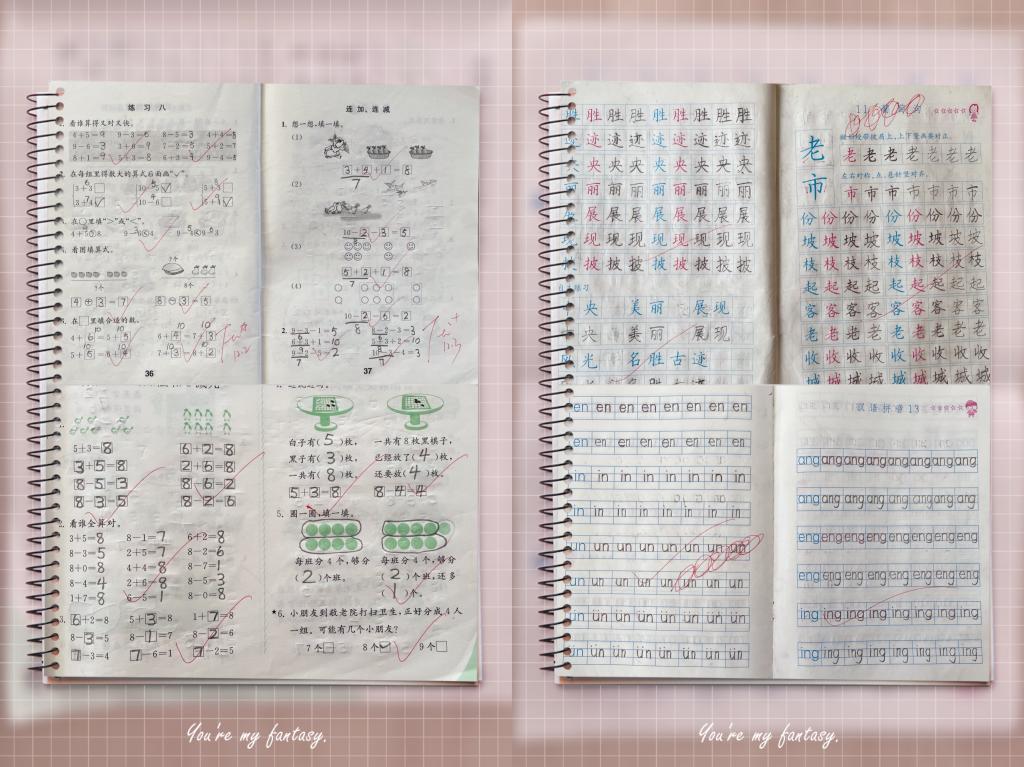 练习八
1.看谁算得又对又快。
4+5=9 9-3=6 8-5=3 4+4=8
9-6=3 3+6=9 7-2=5 5+2=7
8+1=9
2.在每组里得数大的算式后面画“✓”。
3+3
3+4
10-6
5+3
5+4
3.在○里填“>”或“<”。
4.看图列算式。
?个
9个
8个
4+3=7 8-3=5
5.在□里填合适的数。
36
连加、连减
1.想一想,填一填。
(1)
3+3+1=8
7
(2)
10-2-3=5
(3)
5+2+1=8
7
(4)
10-2-6=2
8
2.
9-3-1=5
37
5+3=8 6+2=8
3+5=8 2+6=8
8-5=3 8-6=2
8-3=5 8-2=6
2.看谁全算对。
3+5=8 8-1=7 6+2=8
8-3=5 2+5=7 8-2=6
8+0=8 4+4=8 8-7=1
8-4=4 2+6=8 8-5=3
1+7=8 6-5=1 8-0=8
3.
6+2=8 5+3=8 1+7=8
8-3=5 8-1=7 8-2=6
7-3=4 7-6=1 7-2=5
白子有(5)枚, 一共有8枚黑棋子,
黑子有(3)枚, 已经放了(4)枚,
一共有(8)枚。 还要放(4)枚。
5+3=8 8-4=4
5.圈一圈,填一填。
每班分4个,够分 每班分4个,够分
(2)个班。 (2)个班,还多
(1)个。
★6.小朋友到敬老院打扫卫生,正好分成4人
一组,可能有几个小朋友?
7个 8个 9个
You're my fantasy.
胜胜胜胜胜胜胜胜胜
迹迹迹迹迹迹迹迹迹
央央央央央央央央央
丽丽丽丽丽丽丽丽丽
展展展展展展展展展
现现现现现现现现现
披披披披披披披披披
央 美丽 展现
央 美丽 展现
光 名胜古迹
老
老老老老老老老
左右对称,点、悬针竖对齐。
市
市市市市市市市
份份份份份份份份份
坡坡坡坡坡坡坡坡坡
枝枝枝枝枝枝枝枝枝
起起起起起起起起起
客客客客客客客客客
老老老老老老老老老
收收收收收收收收收
城城城城城城城城城
en en en en en en en en
en en en en en en en en
in in in in in in in in
in in in in in in in in
un un un un un un un un
un un un un un un un un
ün ün ün ün ün ün ün ün
ün ün ün ün ün ün ün ün
汉语拼音13
ang ang ang ang ang ang ang ang
ang ang ang ang ang ang ang ang
eng eng eng eng eng eng eng eng
eng eng eng eng eng eng eng eng
ing ing ing ing ing ing ing ing
ing ing ing ing ing ing ing ing
You're my fantasy.